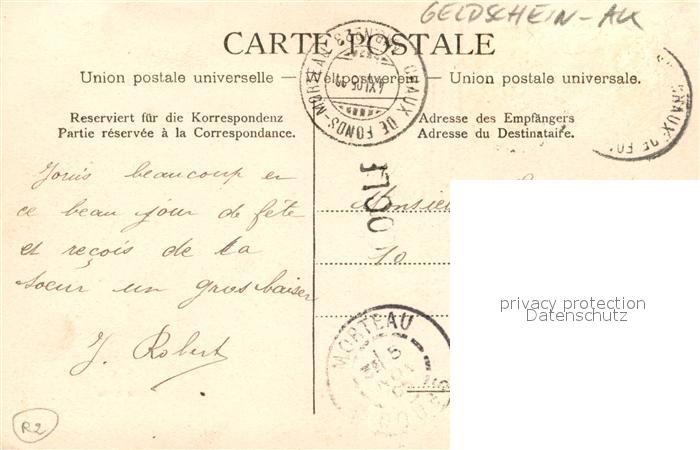 GELDSCHEIN-AK
CARTE POSTALE
Union postale universelle — Weltpostverein — Union postale universale.
Reserviert für die Korrespondenz
Partie réservée à la Correspondance.
Adresse des Empfängers
Adresse du Destinataire.
CHAUX DE FONDS-MORTEAU
CHAUX-DE-FO
Jouis beaucoup en
ce beau jour de fête
et reçois de ta
soeur un gros baiser
J. Robert
Monsieu
10
MORTEAU
privacy protection
Datenschutz
R2